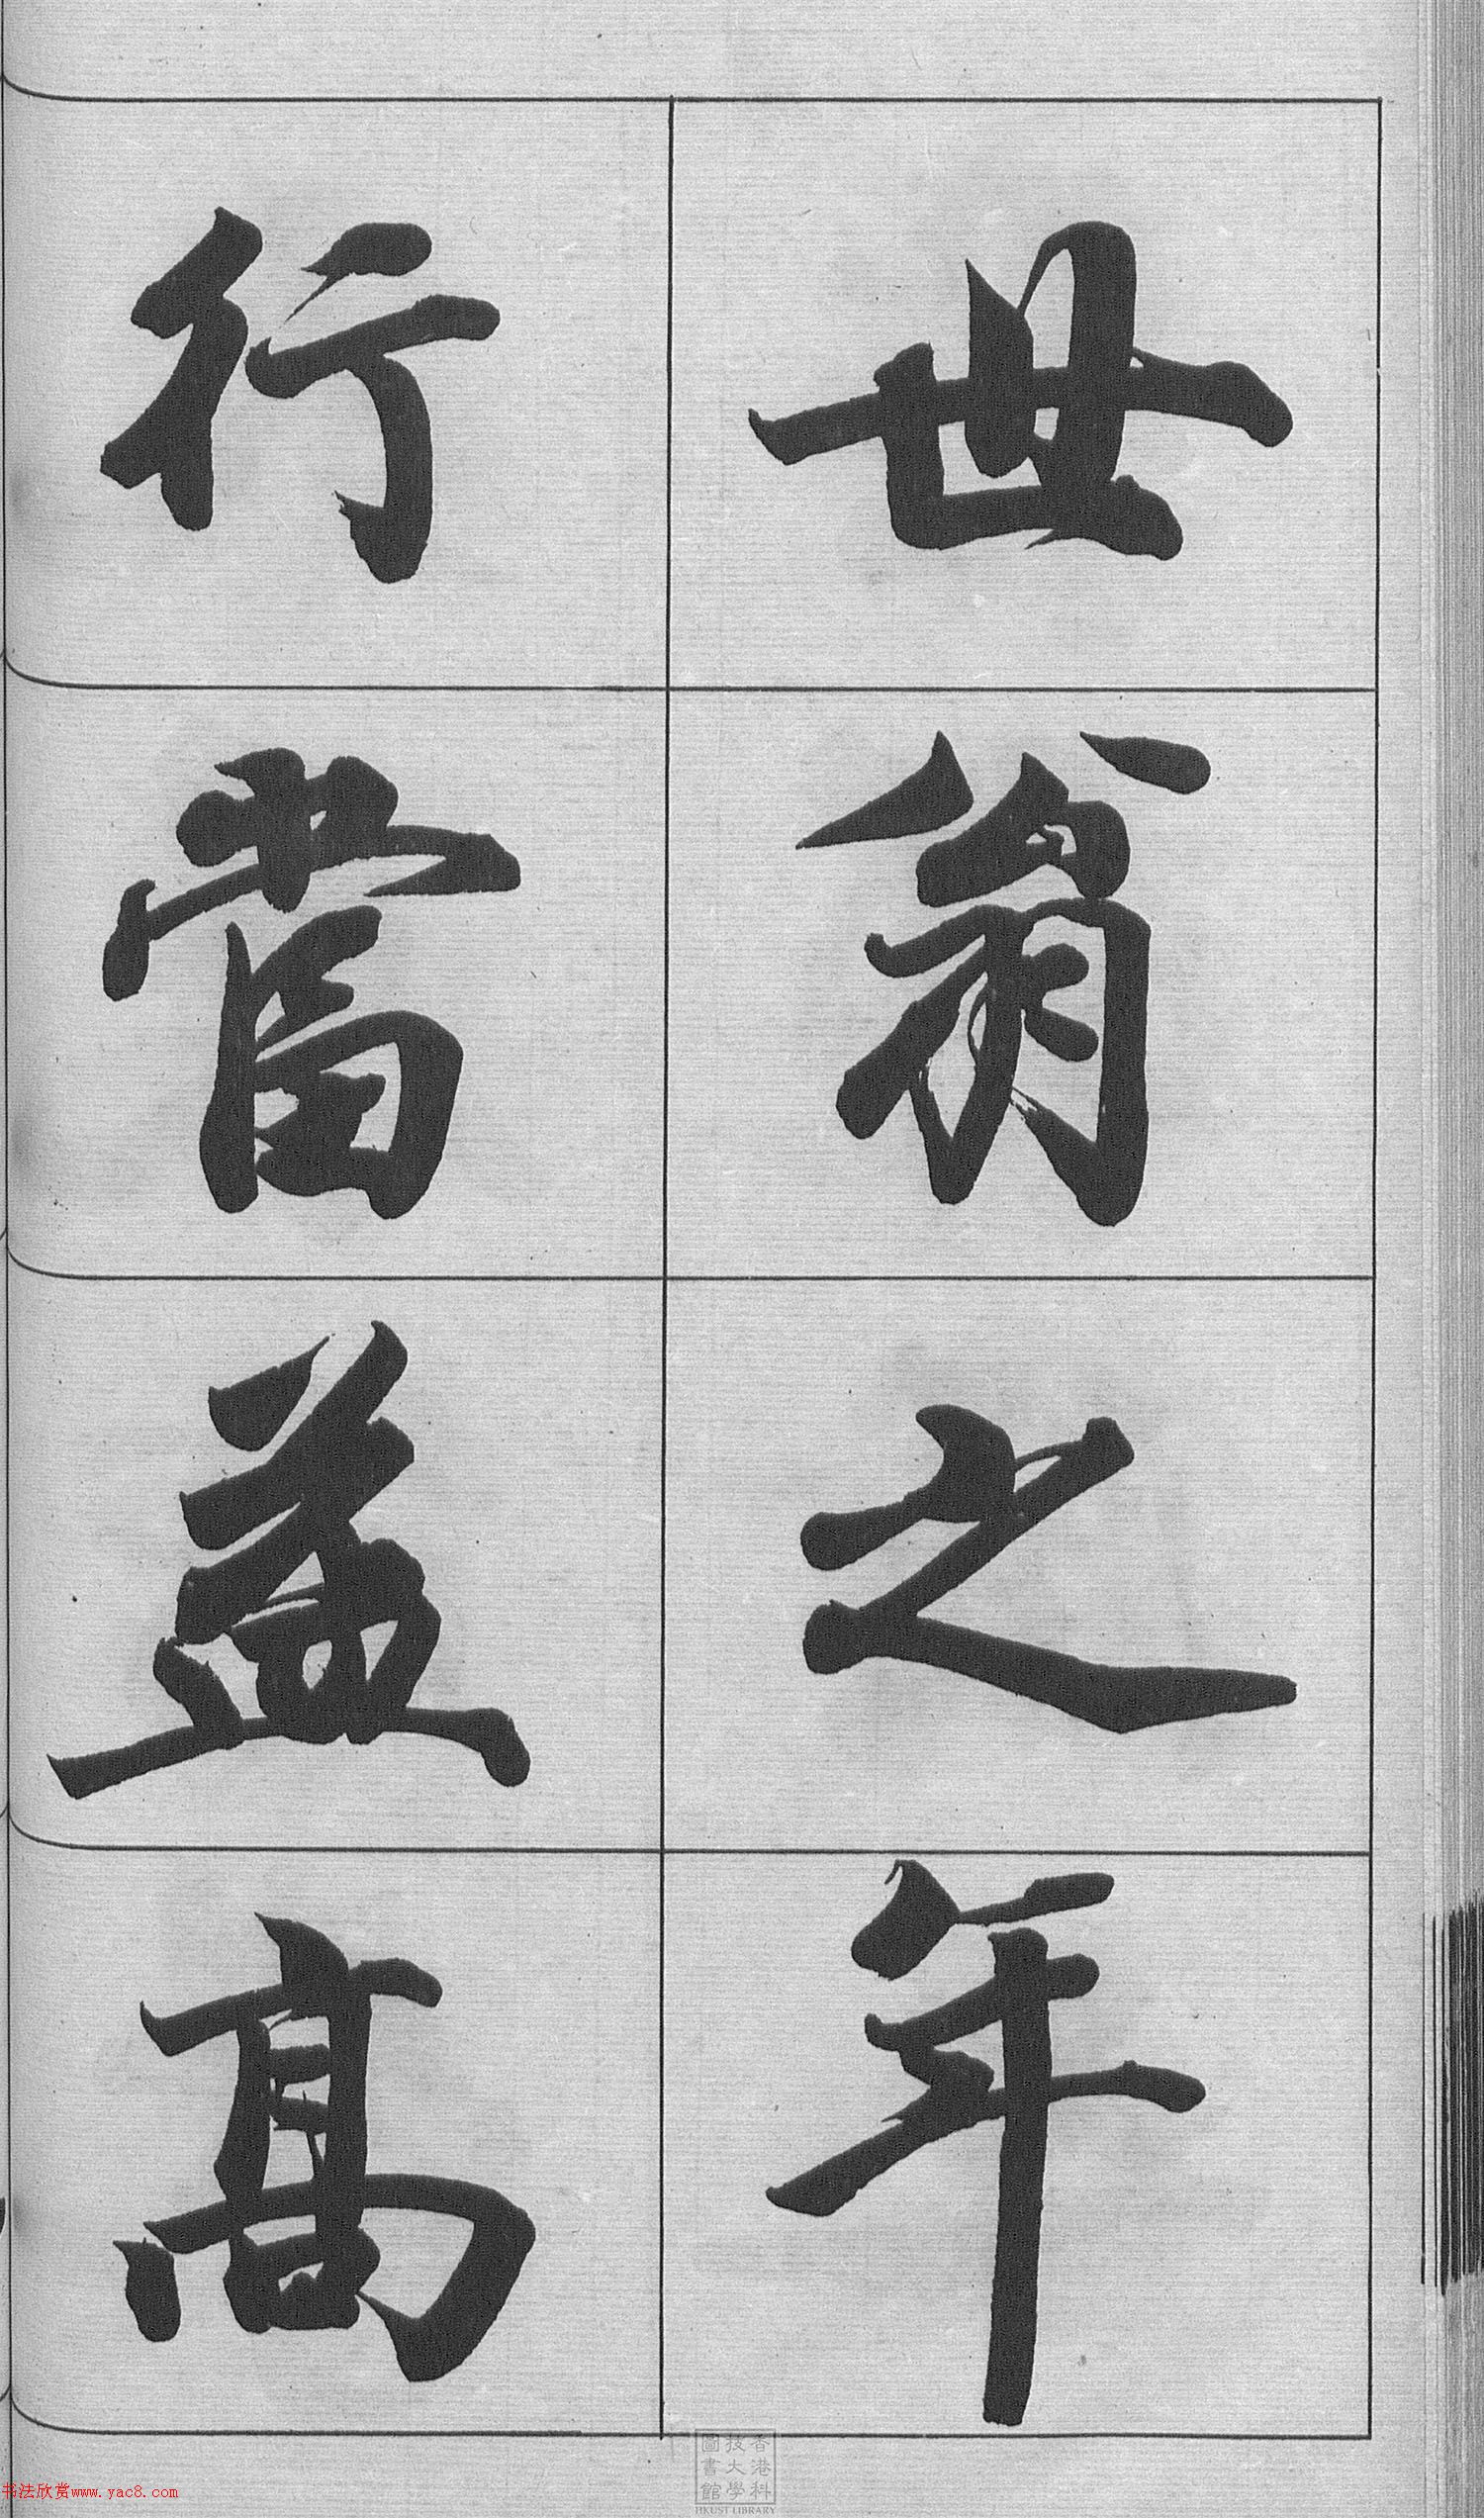 世翁之年
行當益高
香港科
技大學
圖書館
HKUST LIBRARY
书法欣赏www.yac8.com